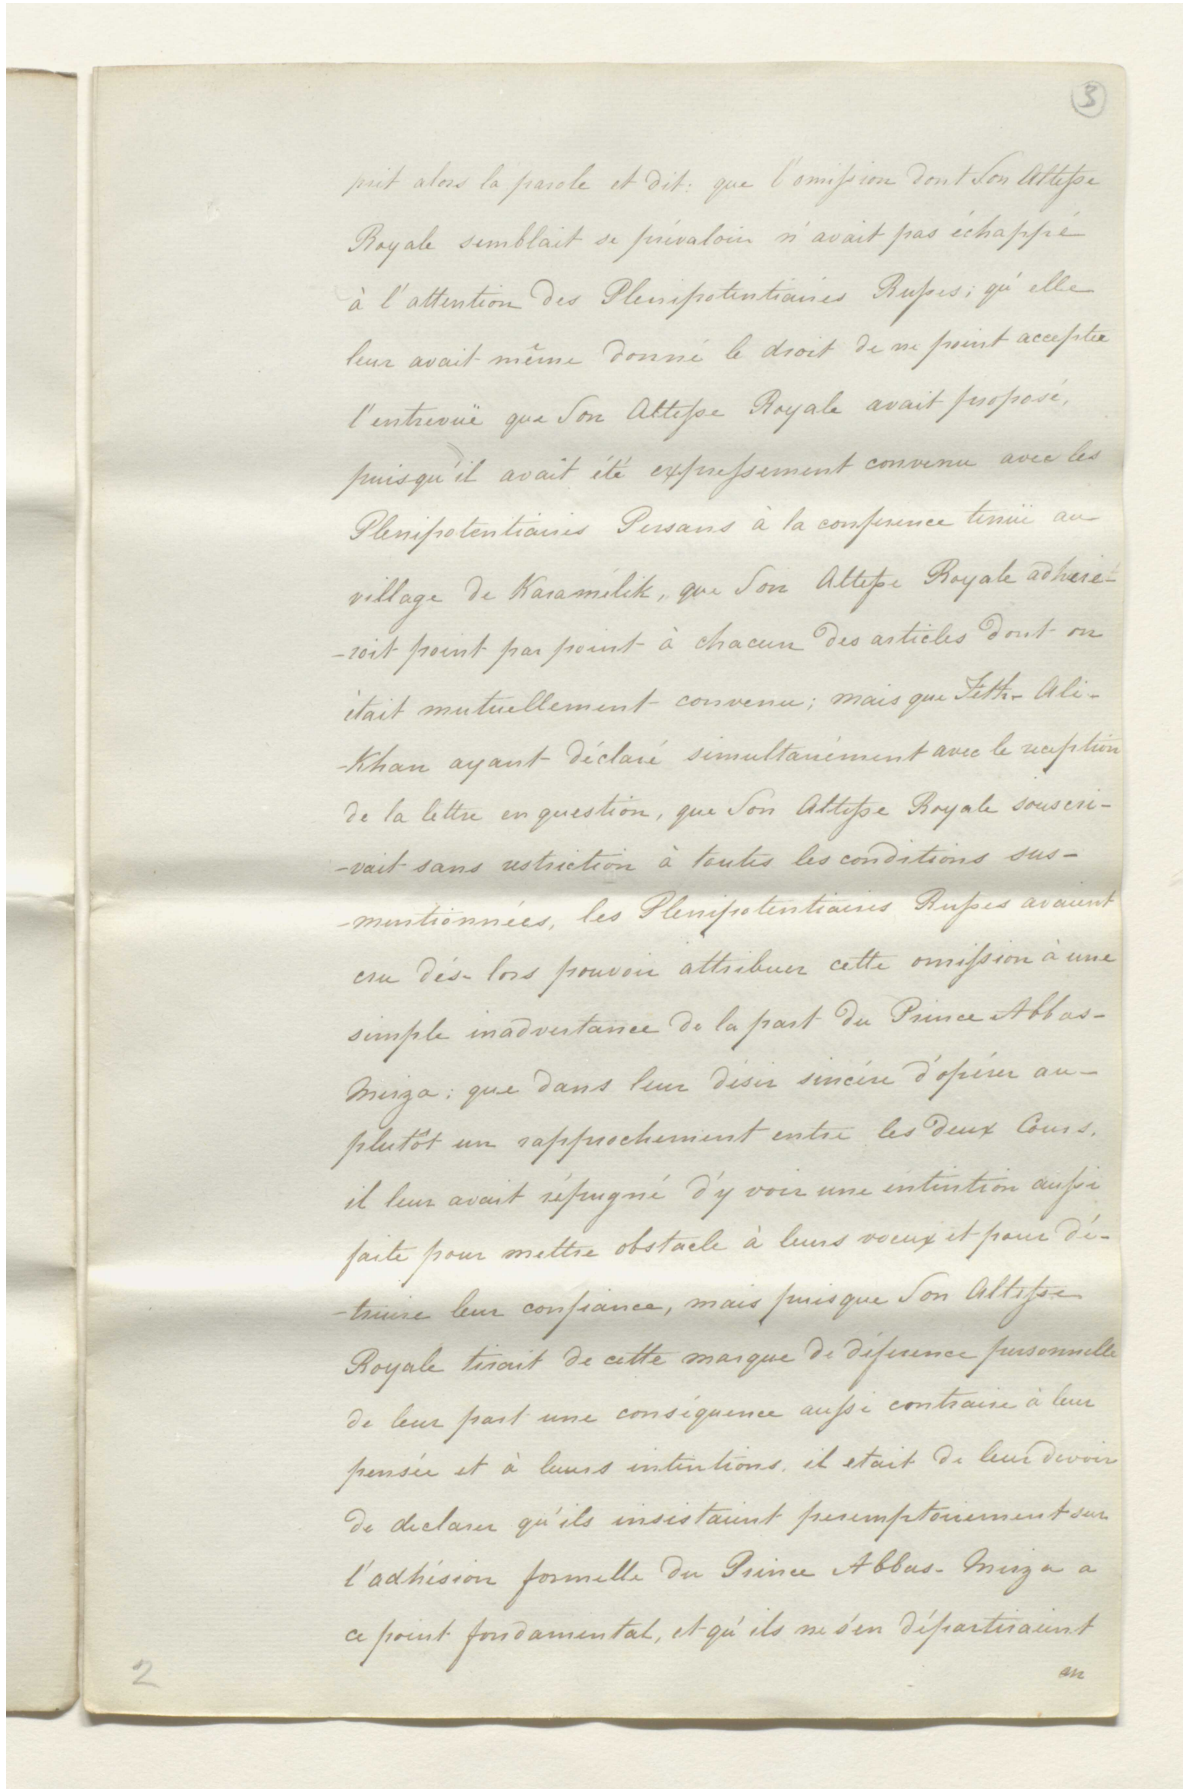 3
prit alors la parole et dit: que l'omission dont Son Altesse
Royale semblait se prévaloir n'avait pas échappé
à l'attention des Plenipotentiaires Russes; qu'elle
leur avait même donné le droit de ne point accepter
l'entrevuë que Son Altesse Royale avait proposé,
puisqu'il avait été expressement convenu avec les
Plenipotentiaires Persans à la conference tenuë au
village de Karamélik, que Son Altesse Royale adhere-
-roit point par point à chacun des articles dont on
était mutuellement convenu; mais que Feth-Ali-
-Khan ayant déclaré simultanément avec le reception
de la lettre en question, que Son Altesse Royale souscri-
-vait sans restriction à toutes les conditions sus-
-mentionnées, les Plenipotentiaires Russes avaient
cru dés-lors pouvoir attribuer cette omission à une
simple inadvertance de la part du Prince Abbas-
Mirza; que dans leur désir sincére d'opérer au-
plutôt un rapprochement entre les deux Cours,
il leur avait répugné d'y voir une intention aussi
faite pour mettre obstacle à leurs voeux et pour dé-
-truire leur confiance, mais puisque Son Altesse
Royale tirait de cette marque de déference personnelle
de leur part une conséquence aussi contraire à leur
pensée et à leurs intentions, il etait de leur devoir
de declarer qu'ils insistaient peremptoirement sur
l'adhésion formelle du Prince Abbas-Mirza a
ce point fondamental, et qu'ils ne s'en départiraient
en
2